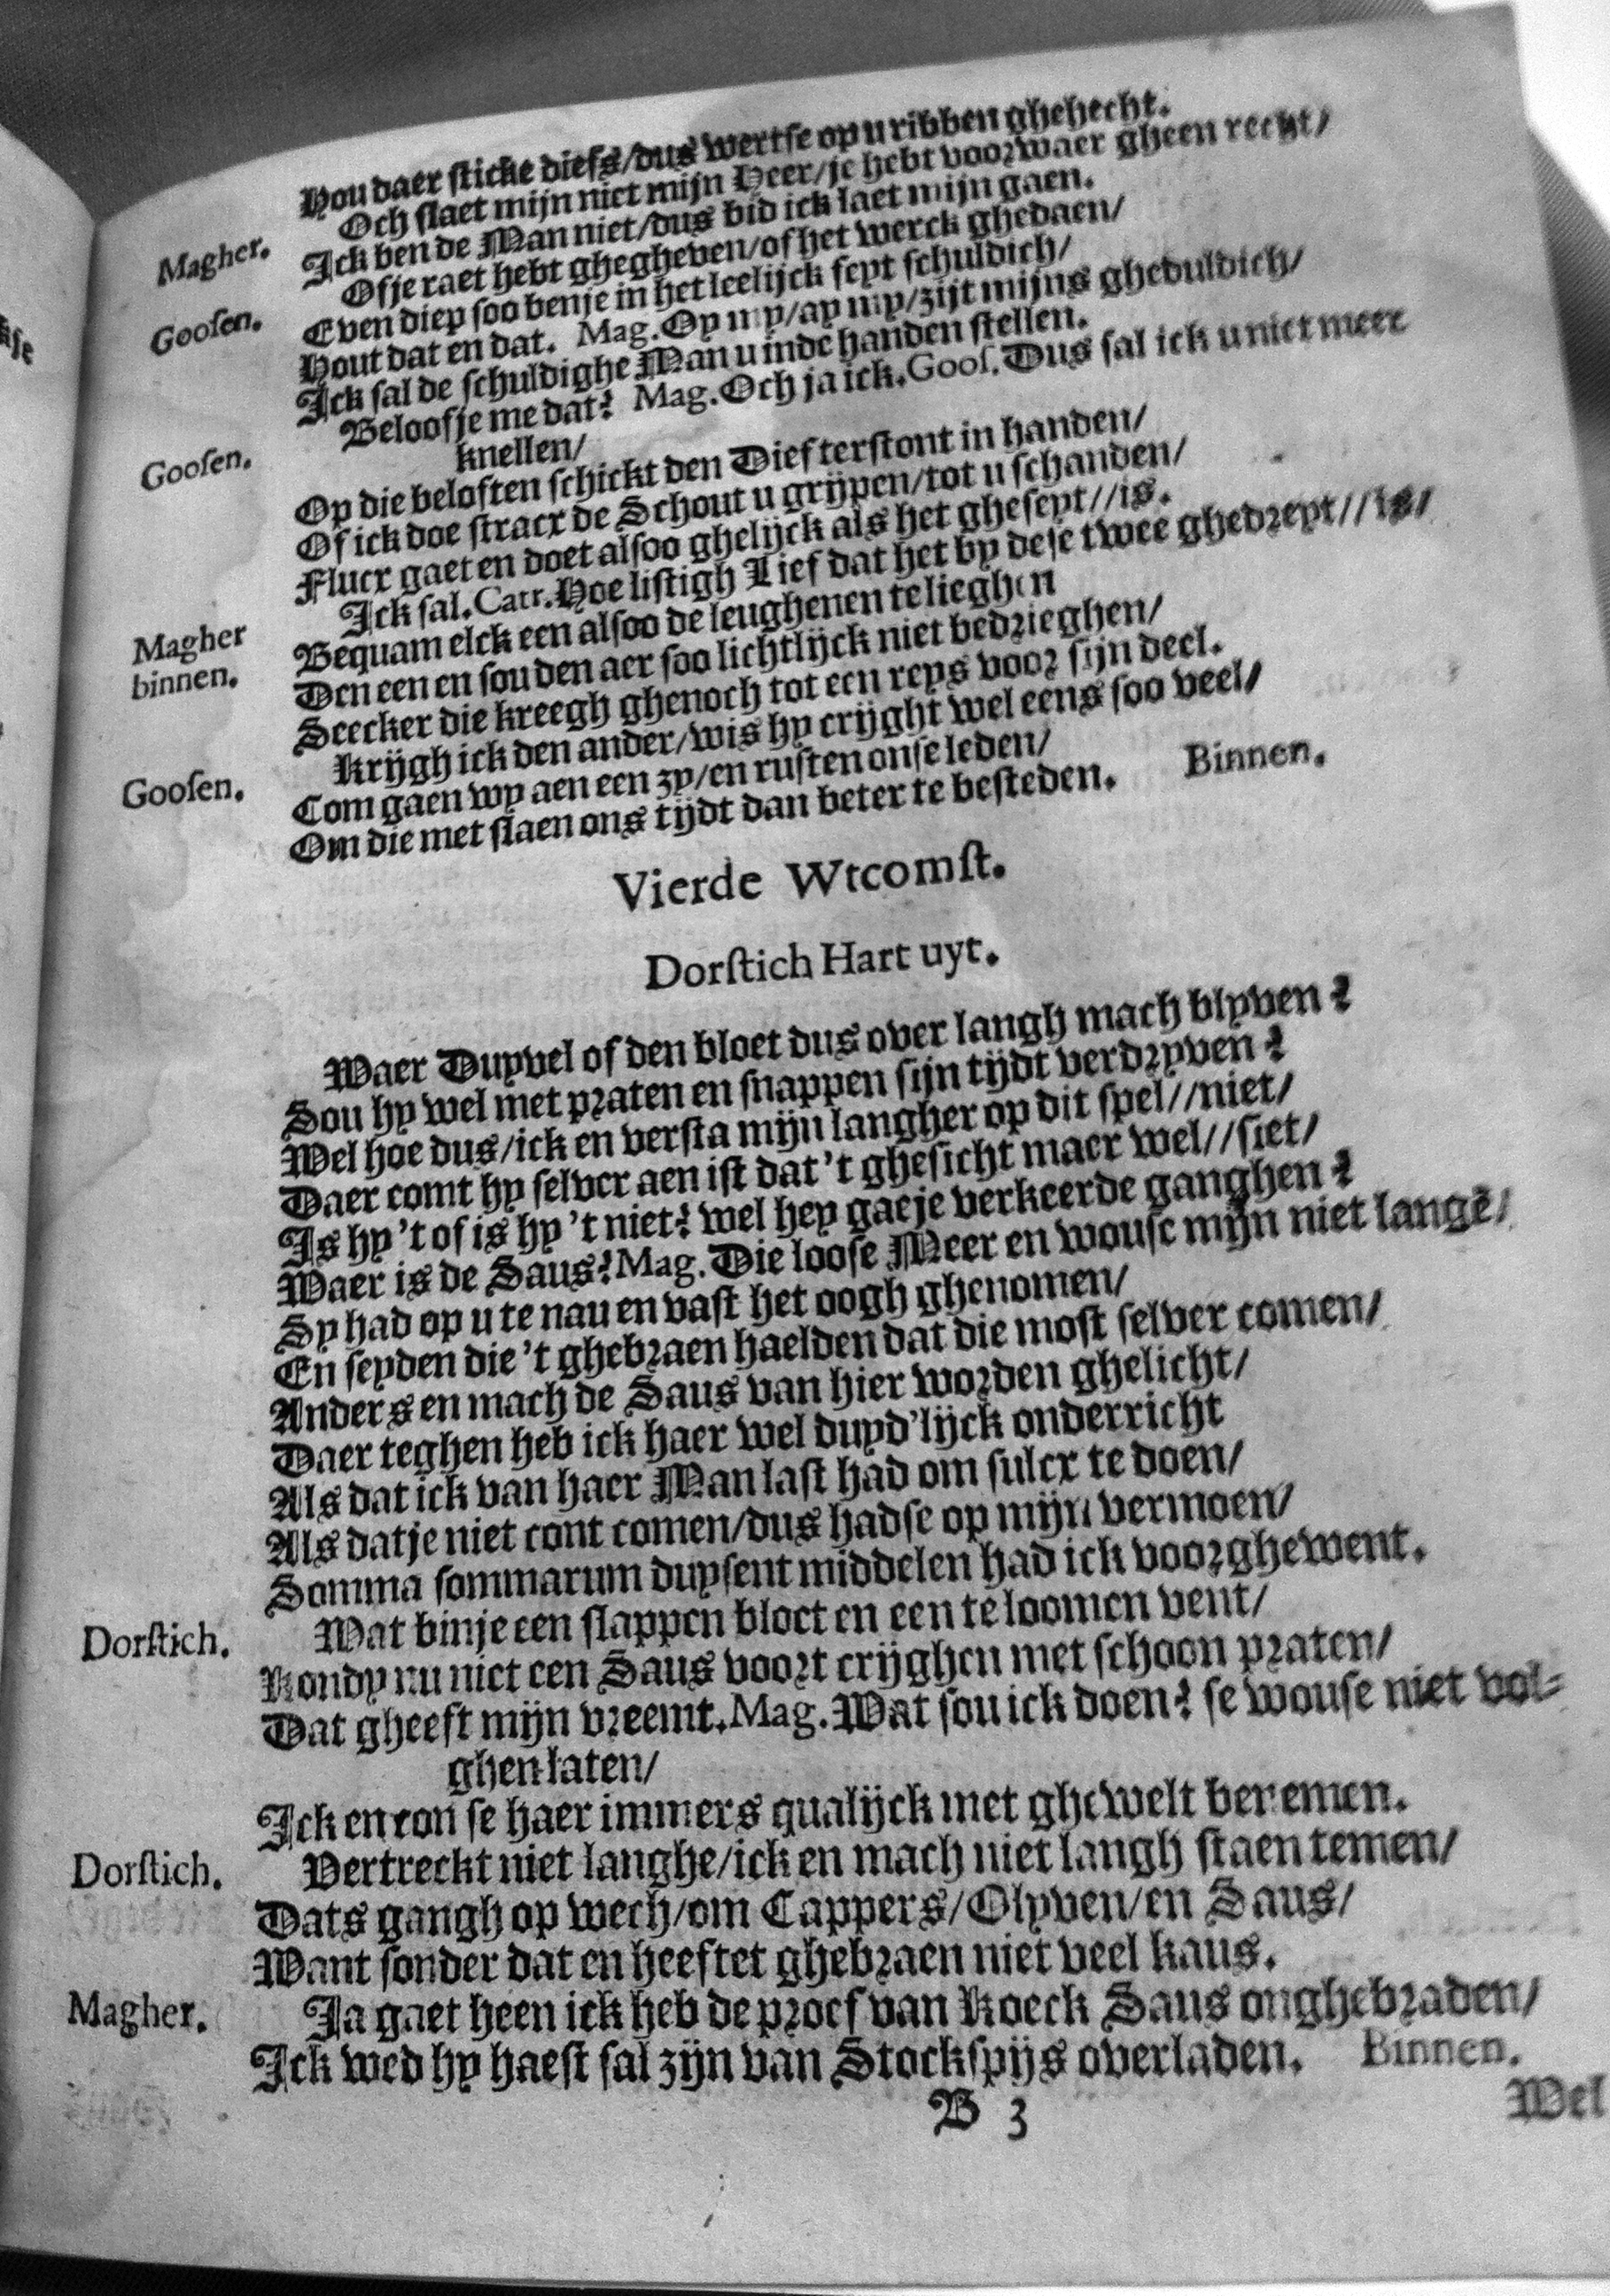 Hou daer sticke diefs/dus wertse op u ribben ghehecht.
Magher. Och slaet mijn niet mijn Heer/je hebt voorwaer gheen recht/
Ick ben de Man niet/dus bid ick laet mijn gaen.
Goosen. Of je raet hebt ghegheven/of het werck ghedaen/
Even diep soo benje in het leelijck feyt schuldich/
Hout dat en dat. Mag. Oy my/ay my/zijt mijns gheduldich/
Ick sal de schuldighe Man u inde handen stellen.
Goosen. Beloof je me dat? Mag. Och ja ick. Goos. Dus sal ick u niet meer
knellen/
Op die beloften schickt den Dief terstont in handen/
Of ick doe stracx de Schout u grijpen/tot u schanden/
Flucx gaet en doet alsoo ghelijck als het gheseyt//is.
Magher binnen. Ick sal. Catr. Hoe listigh Lief dat het by dese twee ghedreyt//is/
Bequam elck een alsoo de leughenen te lieghen
Den een en sou den aer soo lichtlijck niet bedrieghen/
Seecker die kreegh ghenoch tot een reys voor sijn deel.
Goosen. Krijgh ick den ander/wis hy crijght wel eens soo veel/
Com gaen wy aen een zy/en rusten onse leden/
Om die met slaen ons tijdt dan beter te besteden. Binnen.
Vierde Wtcomst.
Dorstich Hart uyt.
Waer Duyvel of den bloet dus over langh mach blyven?
Sou hy wel met praten en snappen sijn tijdt verdryven?
Wel hoe dus/ick en versta mijn langher op dit spel//niet/
Daer comt hy selver aen ist dat 't ghesicht maer wel//siet/
Is hy 't of is hy 't niet? wel hey gaeje verkeerde ganghen?
Waer is de Saus? Mag. Die loose Meer en wouse mijn niet langē/
Sy had op u te nau en vast het oogh ghenomen/
En seyden die 't ghebraen haelden dat die most selver comen/
Anders en mach de Saus van hier worden ghelicht/
Daer teghen heb ick haer wel duyd'lijck onderricht
Als dat ick van haer Man last had om sulcx te doen/
Als datje niet cont comen/dus hadse op mijn vermoen/
Somma sommarum duysent middelen had ick voorghewent.
Dorstich. Wat binje een slappen bloet en een te loomen vent/
Kondy nu niet een Saus voort crijghen met schoon praten/
Dat gheeft mijn vreemt. Mag. Wat sou ick doen? se wouse niet vol-
ghen laten/
Ick en con se haer immers qualijck met ghewelt benemen.
Dorstich. Vertreckt niet langhe/ick en mach niet langh staen temen/
Dats gangh op wech/om Cappers/Olyven/en Saus/
Want sonder dat en heeftet ghebraen niet veel kaus.
Magher. Ja gaet heen ick heb de proef van Koeck Saus onghebraden/
Ick wed hy haest sal zijn van Stockspijs overladen. Binnen.
B 3
Wel